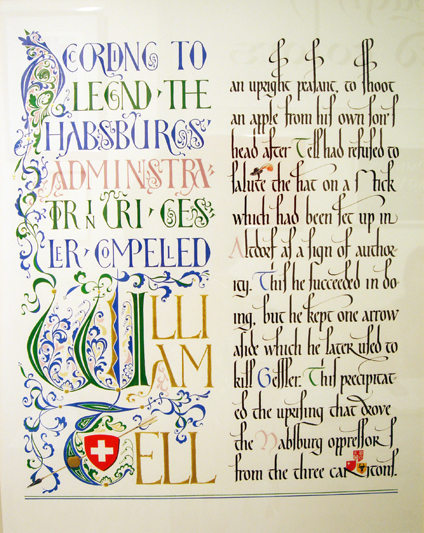 ACCORDING TO
LEGEND·THE
HABSBURGS'
ADMINISTRA-
TOR IN URI·GES-
LER·COMPELLED
WILLI
AM
TELL
an upright peasant, to shoot
an apple from his own son's
head after Tell had refused to
salute the hat on a stick
which had been set up in
Altdorf as a sign of autho-
rity. This he succeeded in do-
ing, but he kept one arrow
aside which he later used to
kill Gessler. This precipitat-
ed the uprising that drove
the Habsburg oppressors
from the three cantons.